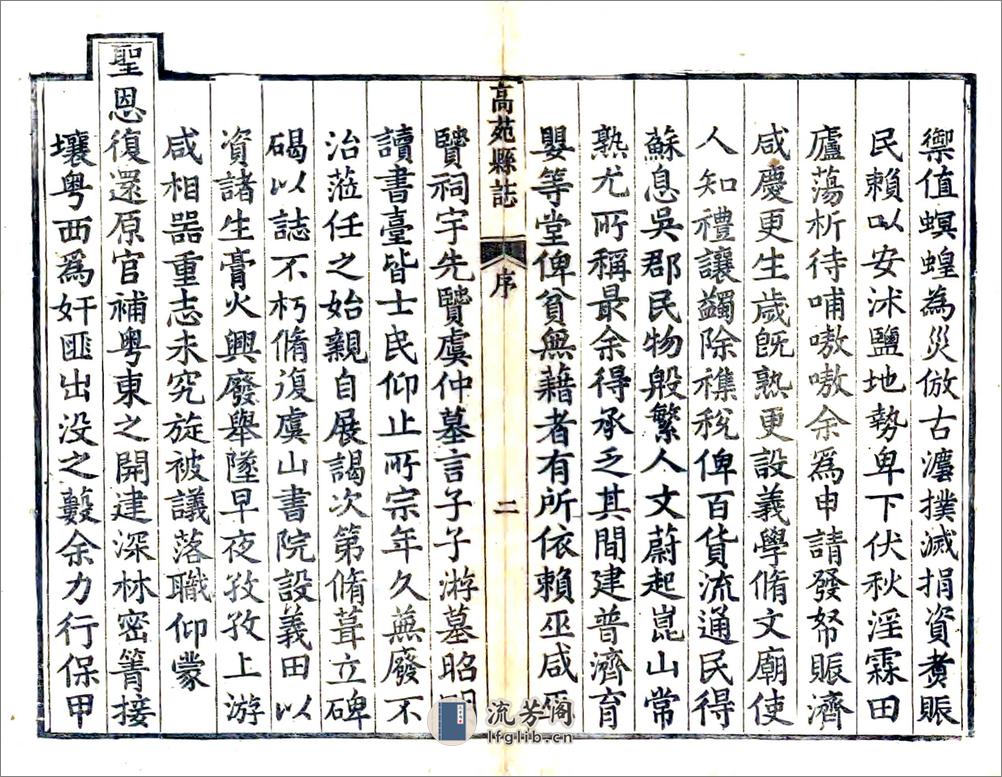 禦值螟蝗為災倣古瀍撲滅捐資煑賑
民賴以安沭鹽地勢卑下伏秋淫霖田
廬蕩析待哺嗷嗷余爲申請發帑賑濟
咸慶更生歲旣熟更設義學脩文廟使
人知禮讓蠲除襍稅俾百貨流通民得
蘇息吳郡民物殷繁人文蔚起崑山常
熟尤所稱最余得承乏其間建普濟育
嬰等堂俾貧無藉者有所依賴巫咸
高苑縣誌
序
二
賢祠宇先賢虞仲墓言子子游墓昭明
讀書臺皆士民仰止所宗年久蕪廢不
治蒞任之始親自展謁次第脩葺立碑
碣以誌不朽脩復虞山書院設義田以
資諸生膏火興廢舉墜早夜孜孜上游
咸相噐重志未究旋被議落職仰蒙
聖恩復還原官補粵東之開建深林密箐接
壤粤西爲奸匪出没之藪余力行保甲
流芳阁
lfglib.cn